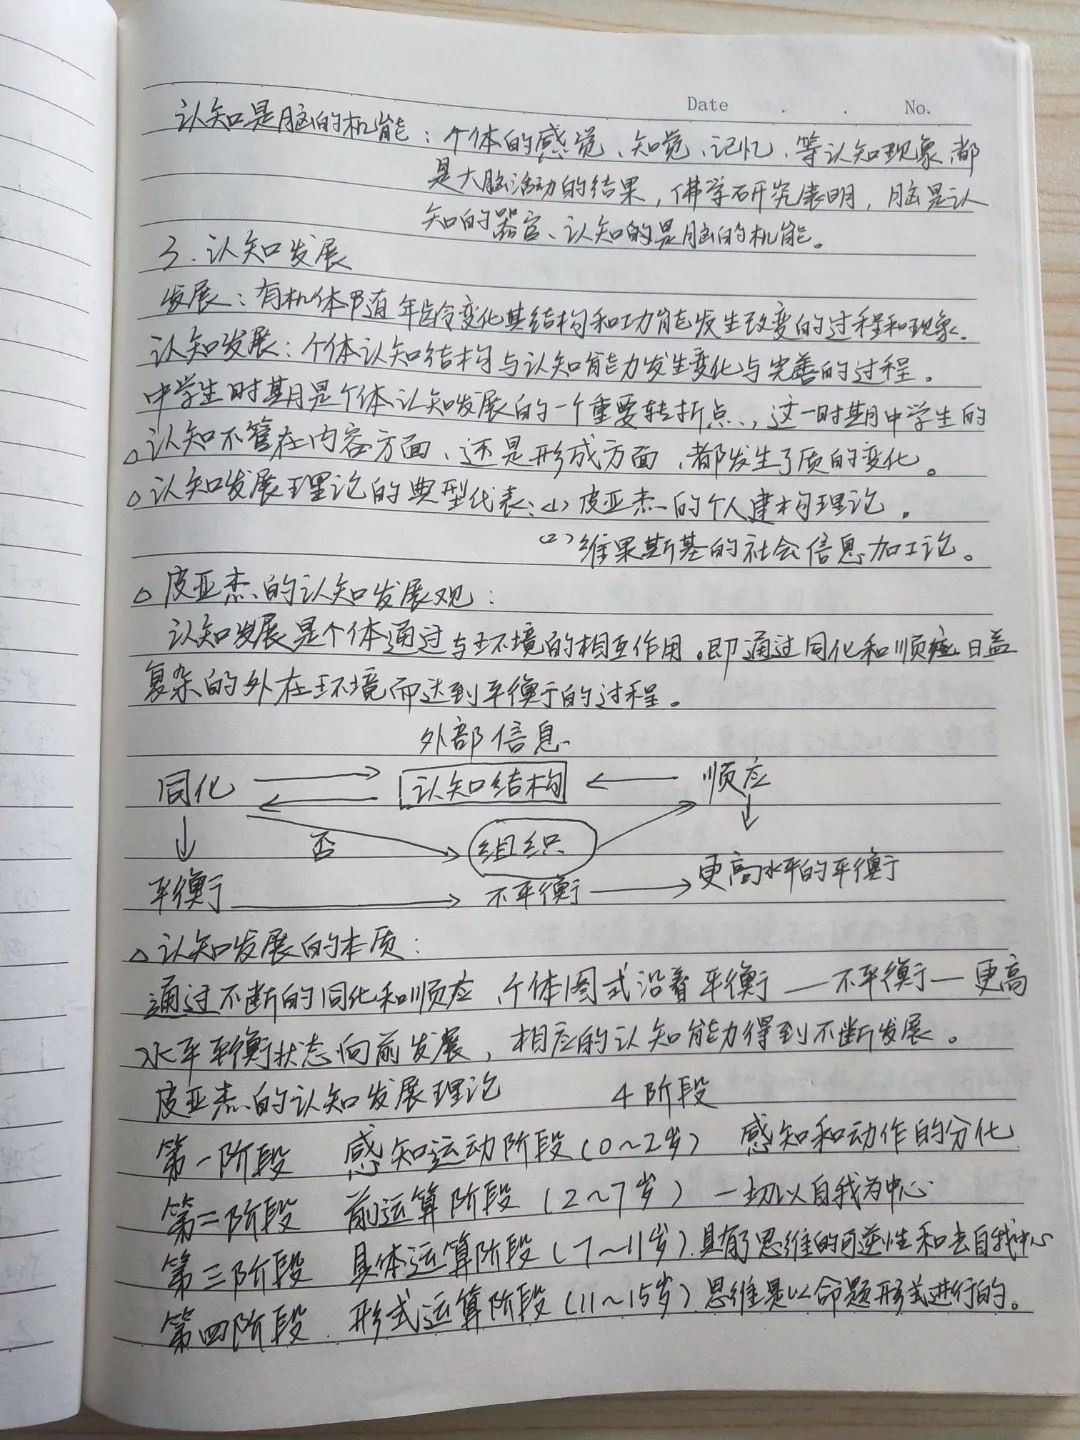 Date . . No.
认知是脑的机能：个体的感觉、知觉、记忆、等认知现象都
是大脑活动的结果，佛学研究表明，脑是认
知的器官、认知的是脑的机能。
3.认知发展
发展：有机体随年龄变化其结构和功能发生改变的过程和现象.
认知发展：个体认知结构与认知能力发生变化与完善的过程。
中学生时期是个体认知发展的一个重要转折点、，这一时期中学生的
认知不管在内容方面、还是形成方面，都发生了质的变化。
认知发展理论的典型代表：(1) 皮亚杰的个人建构理论。
(2) 维果斯基的社会信息加工论。
皮亚杰的认知发展观：
认知发展是个体通过与环境的相互作用。即通过同化和顺应日益
复杂的外在环境而达到平衡的过程。
外部信息
同化 认知结构 顺应
否 组织
平衡 不平衡 更高水平的平衡
认知发展的本质：
通过不断的同化和顺应，个体图式沿着平衡—不平衡—更高
水平平衡状态向前发展，相应的认知能力得到不断发展。
皮亚杰的认知发展理论 4阶段
第一阶段 感知运动阶段(0~2岁) 感知和动作的分化
第二阶段 前运算阶段(2~7岁) 一切以自我为中心
第三阶段 具体运算阶段(7~11岁).具有了思维的可逆性和去自我中心
第四阶段.形式运算阶段(11~15岁).思维是以命题形式进行的。